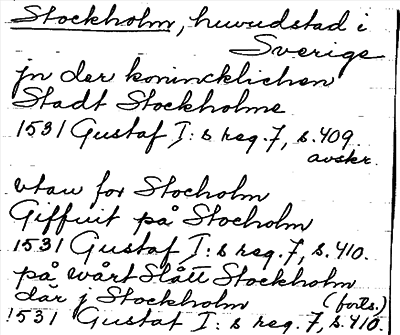 Stockholm, huvudstad i
Sverige
jn der konincklichen
Stadt Stockholms
1531 Gustaf I:s reg. 7, s. 409.
avskr.
vtan for Stocholm
Giffuit på Stocholm
1531 Gustaf I:s reg. 7, s. 410.
på wårt Slått Stockholm
där j Stockholm (forts.)
1531 Gustaf I:s reg. 7, s. 410.